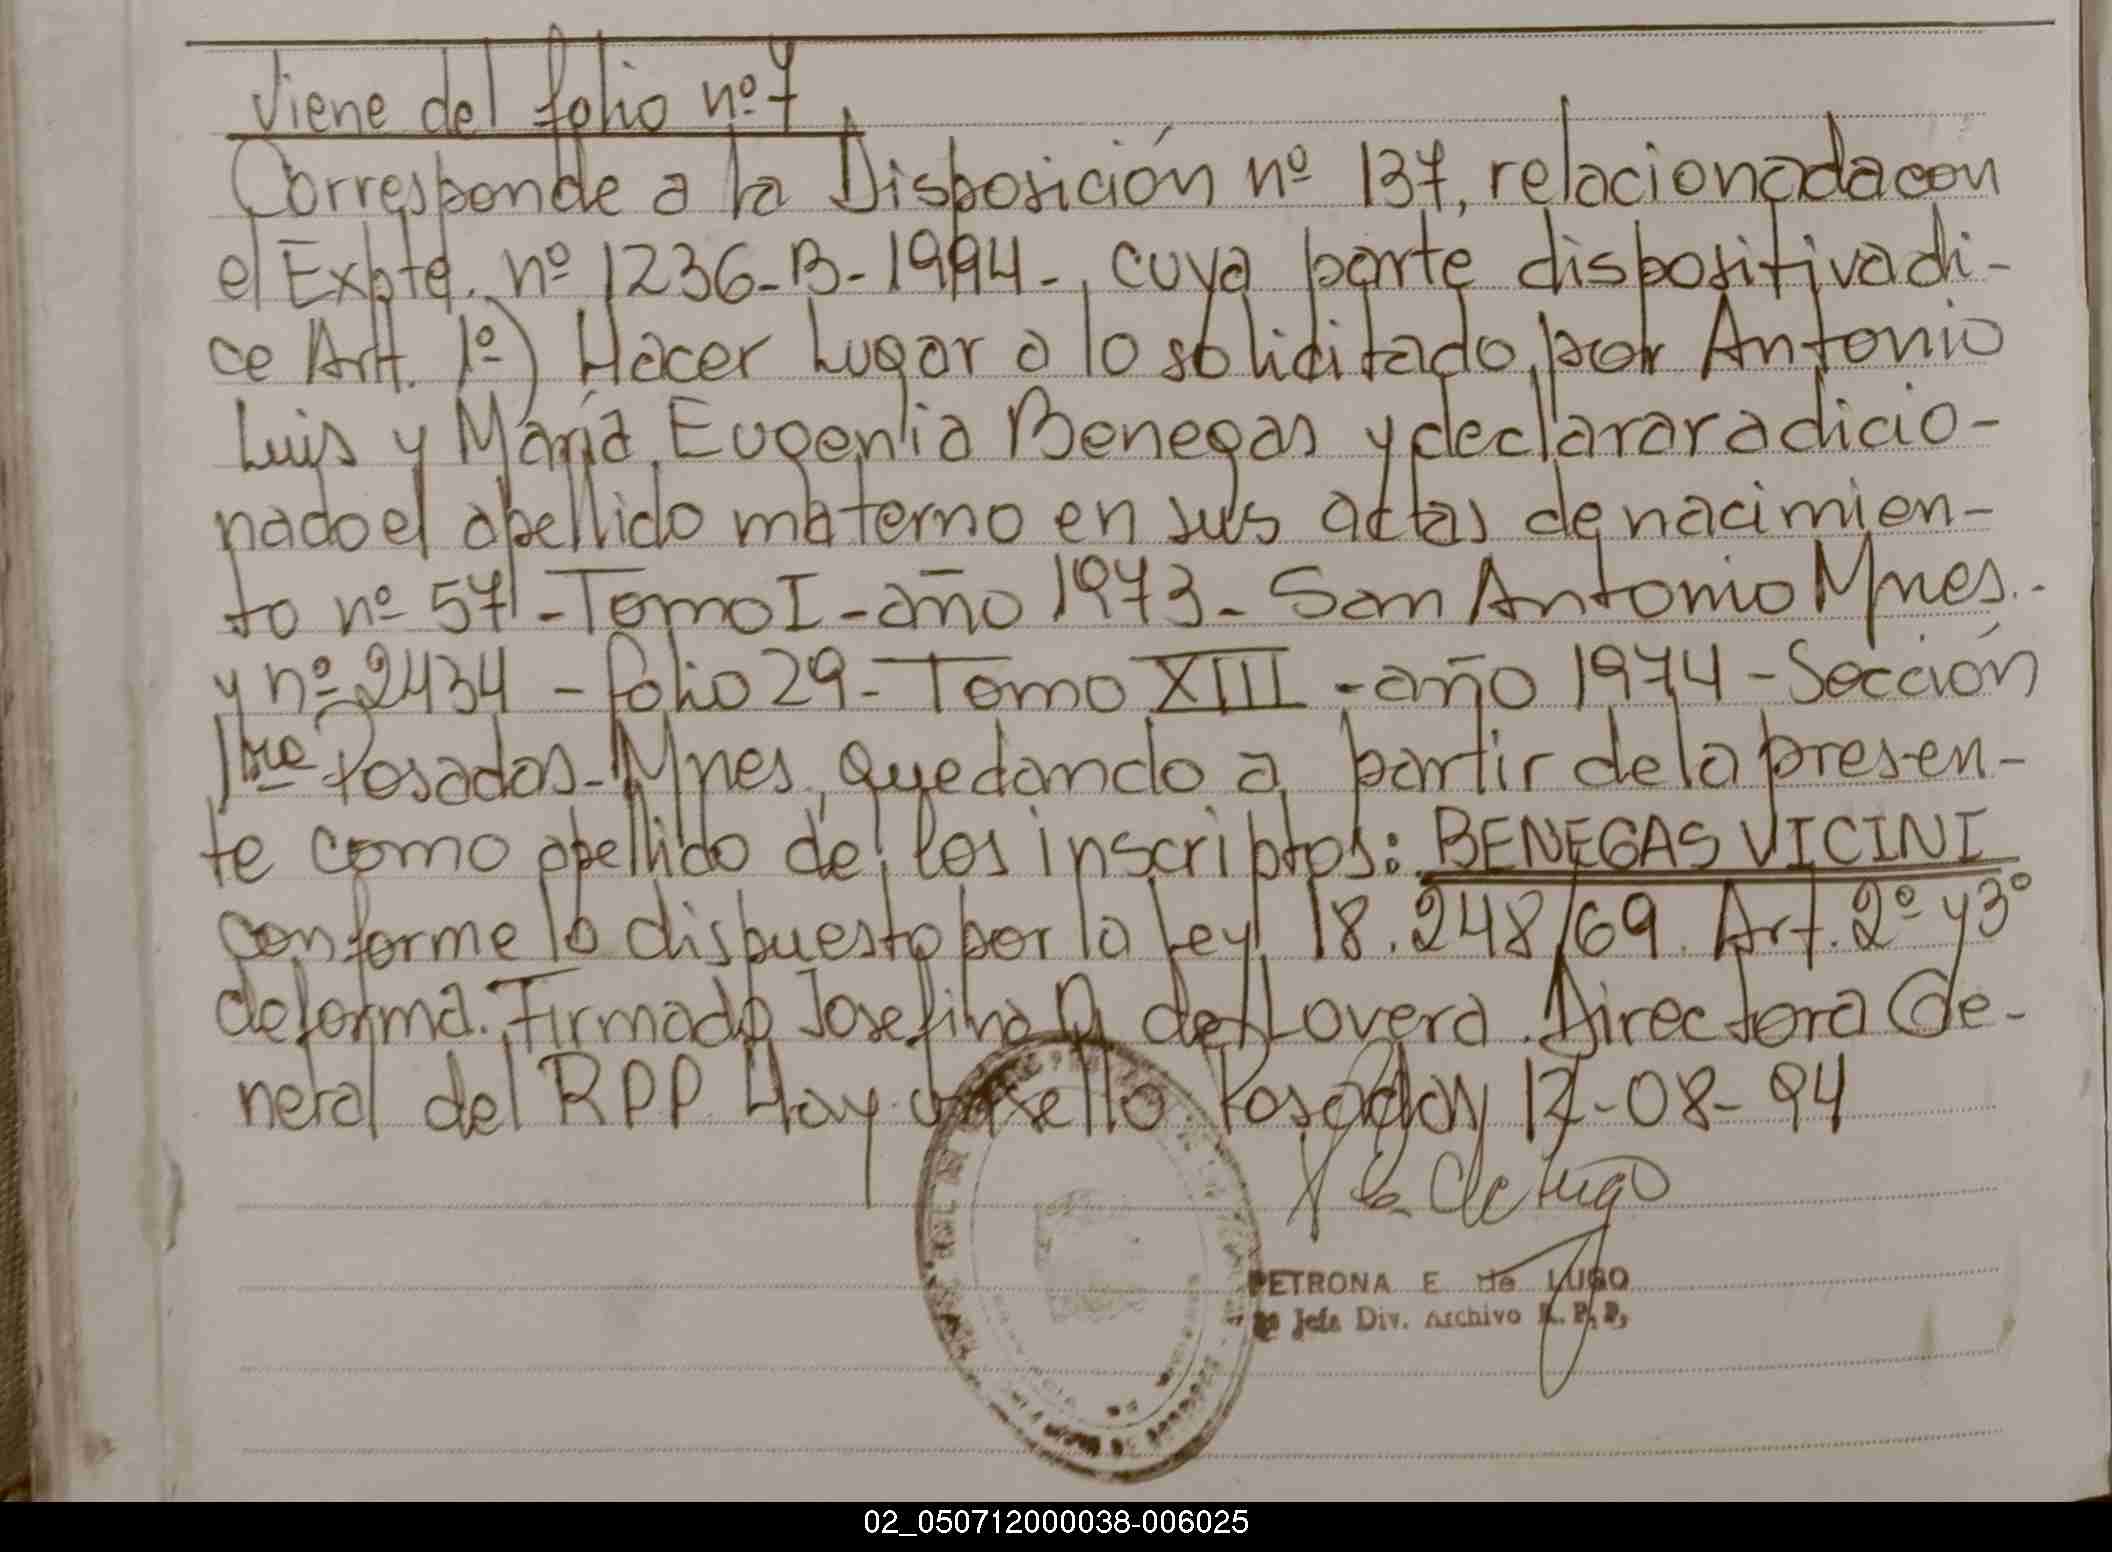 Viene del folio nº 7
Corresponde a la Disposición nº 137, relacionada con
el Expte. nº 1236-B-1994-, cuya parte dispositiva di-
ce Art. 1º) Hacer Lugar a lo solicitado por Antonio
Luis y María Eugenia Benegas y declarar adicio-
nado el apellido materno en sus actas de nacimien-
to nº 57 - Tomo I - año 1973 - San Antonio Mnes.-
y nº 2434 - folio 29 - Tomo XIII - año 1974 - Sección
1ra Posadas - Mnes, quedando a partir de la presen-
te como apellido de los inscriptos: BENEGAS VICINI
conforme lo dispuesto por la Ley 18.248/69. Art. 2º y 3º
de forma. Firmado Josefina de Lovera. Directora Ge-
neral del RPP Hay un sello Posadas 17-08-94
de Lugo
PETRONA E de LUGO
Jefa Div. Archivo R. P. P.
02_050712000038-006025